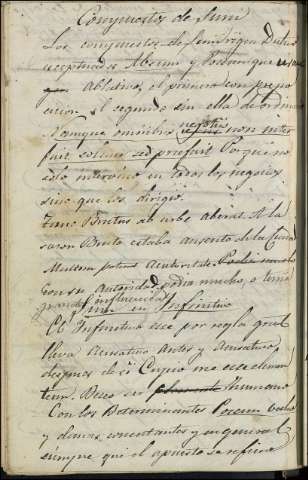 Compuestos de Sum
Los compuestos de Sum rigen Dativo
exceptuados Absum y
Ablativo, el primero con prepo
sicion el segundo sin ella de ordinario
Namque omnibus negotiis non inter
fuit solum sed præfuit Porque no
solo intervino en todos los negocios
sino que los dirigio.
Tunc Brutus ab urbe aberat A la
sazon Bruto estaba ausente de la Ciudad
autoritate. Podia mucho
con su autoridad, podia mucho, o tenia
grande influencia
Sum en Infinitivo
El Infinitivo esse por regla gral
lleva Acusativo antes y Acusativo
despues de si Cupio me esse clemen
tem. Deseo ser humano
Con los Determinantes
y demas concertantes y en general
siempre que el